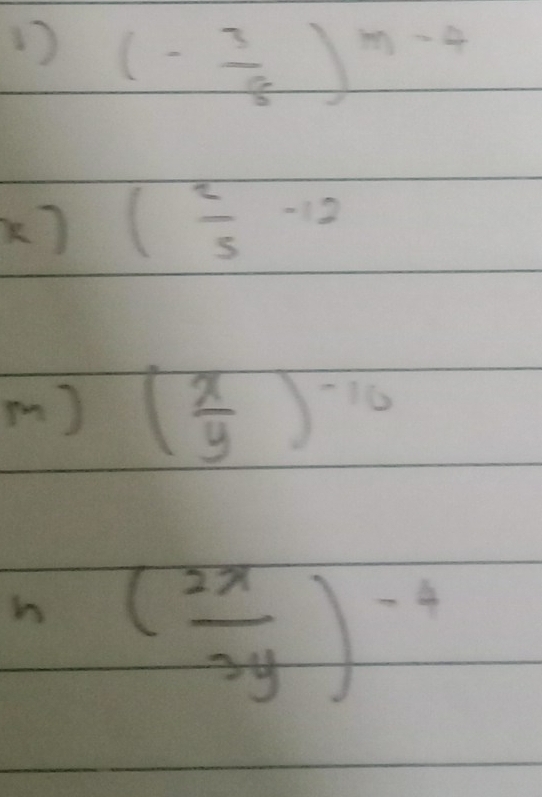 1) (- 3/8)^m-4
x) (2/5 -12
m) (x/y)^-10
n (2x/3y)^-4